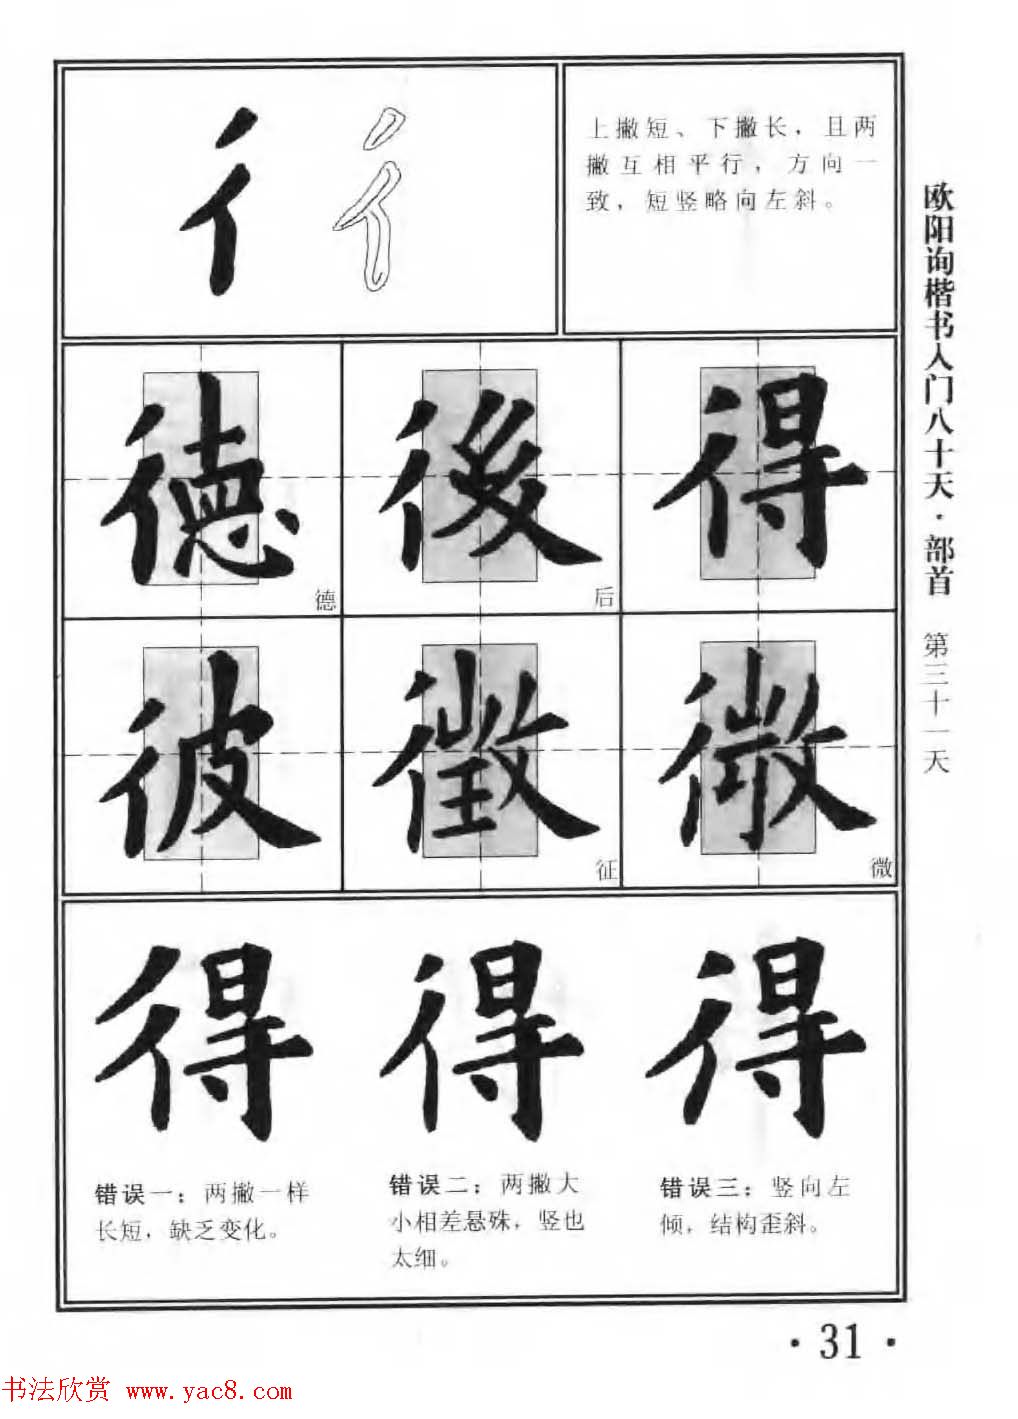 彳 彳
上撇短、下撇长，且两
撇互相平行，方向一
致，短竖略向左斜。
德 後 得
德 后
彼 徵 微
征 微
得 得 得
错误一：两撇一样
长短，缺乏变化。
错误二：两撇大
小相差悬殊，竖也
太细。
错误三：竖向左
倾，结构歪斜。
欧阳询楷书入门八十天·部首 第三十一天
·31·
书法欣赏 www.yac8.com